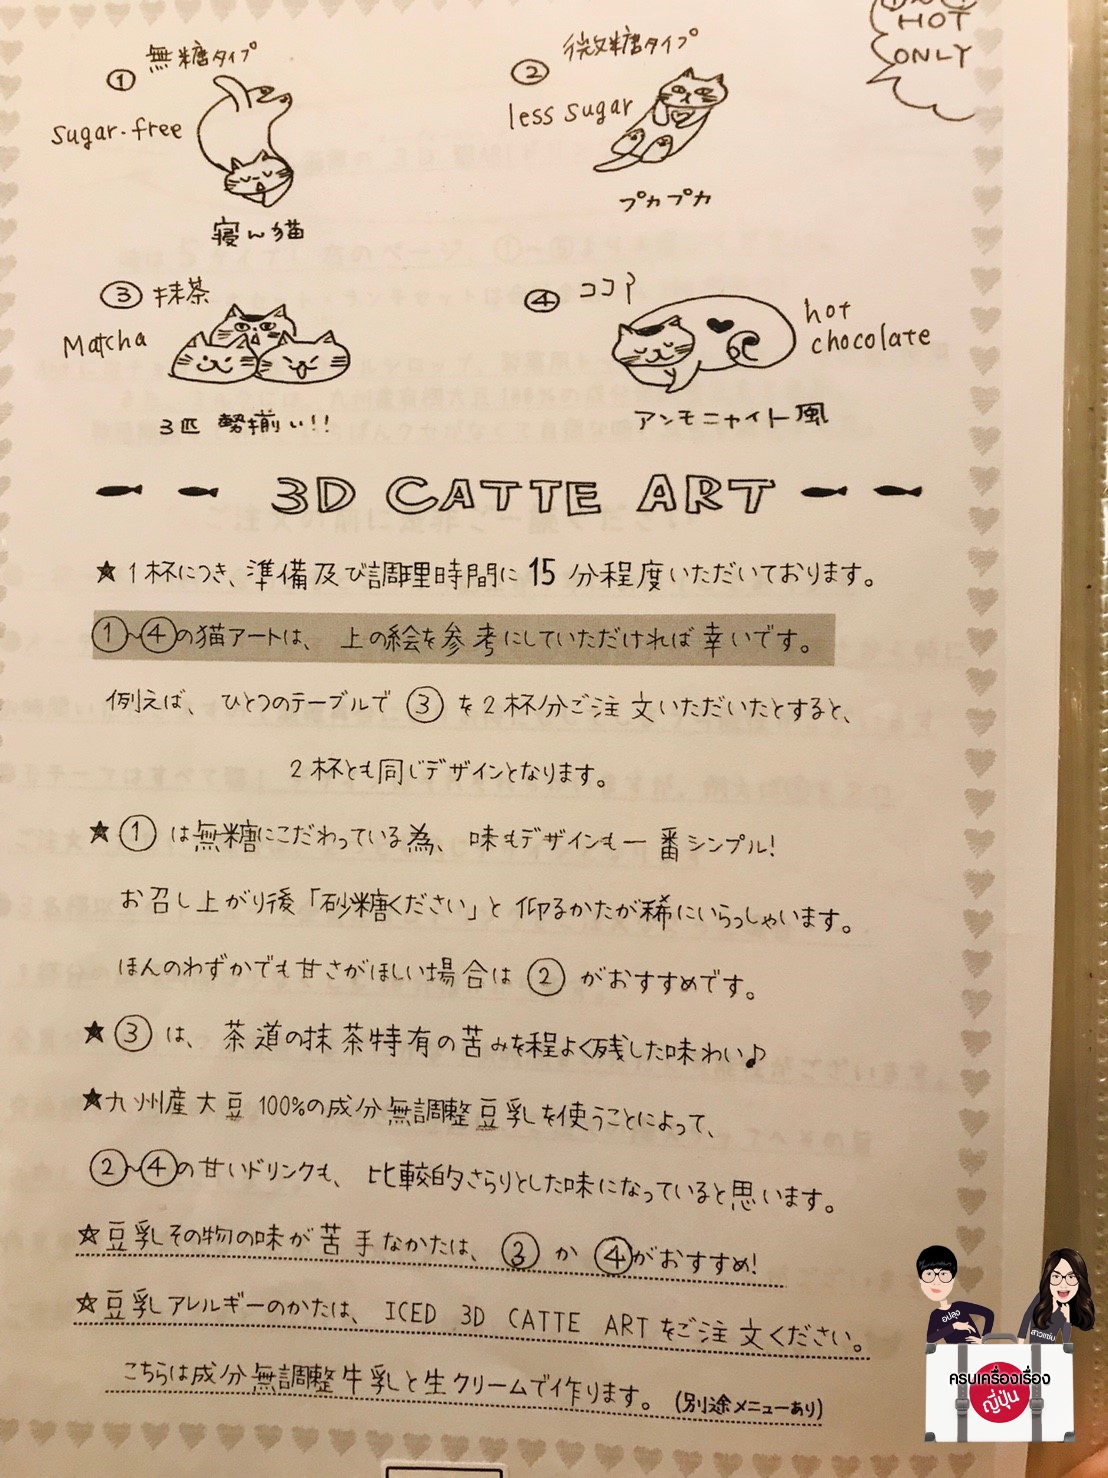 HOT
ONLY
① 無糖タイプ
sugar-free
寝ん猫
② 微糖タイプ
less sugar
プカプカ
③ 抹茶
Matcha
3匹 勢揃い!!
④ ココア
hot
chocolate
アンモニャイト風
3D CATTE ART
★1杯につき、準備及び調理時間に15分程度いただいております。
①~④の猫アートは、上の絵を参考にしていただければ幸いです。
例えば、ひとつのテーブルで③を2杯分ご注文いただいたとすると、
2杯とも同じデザインとなります。
★①は無糖にこだわっている為、味もデザインも一番シンプル!
お召し上がり後「砂糖ください」と仰るかたが稀にいらっしゃいます。
ほんのわずかでも甘さがほしい場合は②がおすすめです。
★③は、茶道の抹茶特有の苦みを程よく残した味わい♪
★九州産大豆100%の成分無調整豆乳を使うことによって、
②~④の甘いドリンクも、比較的さらりとした味になっていると思います。
☆豆乳その物の味が苦手なかたは、③か④がおすすめ!
☆豆乳アレルギーのかたは、ICED 3D CATTE ARTをご注文ください。
こちらは成分無調整牛乳と生クリームで作ります。(別途メニューあり)
อปลุง
สาวแว่น
ครบเครื่องเรื่อง
ญี่ปุ่น